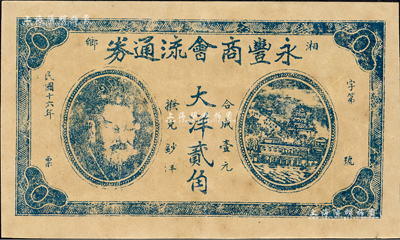 湘鄉
永豐商會流通券
字第 號
合成壹元
大洋貳角
撥兌鈔洋
民國十六年 票